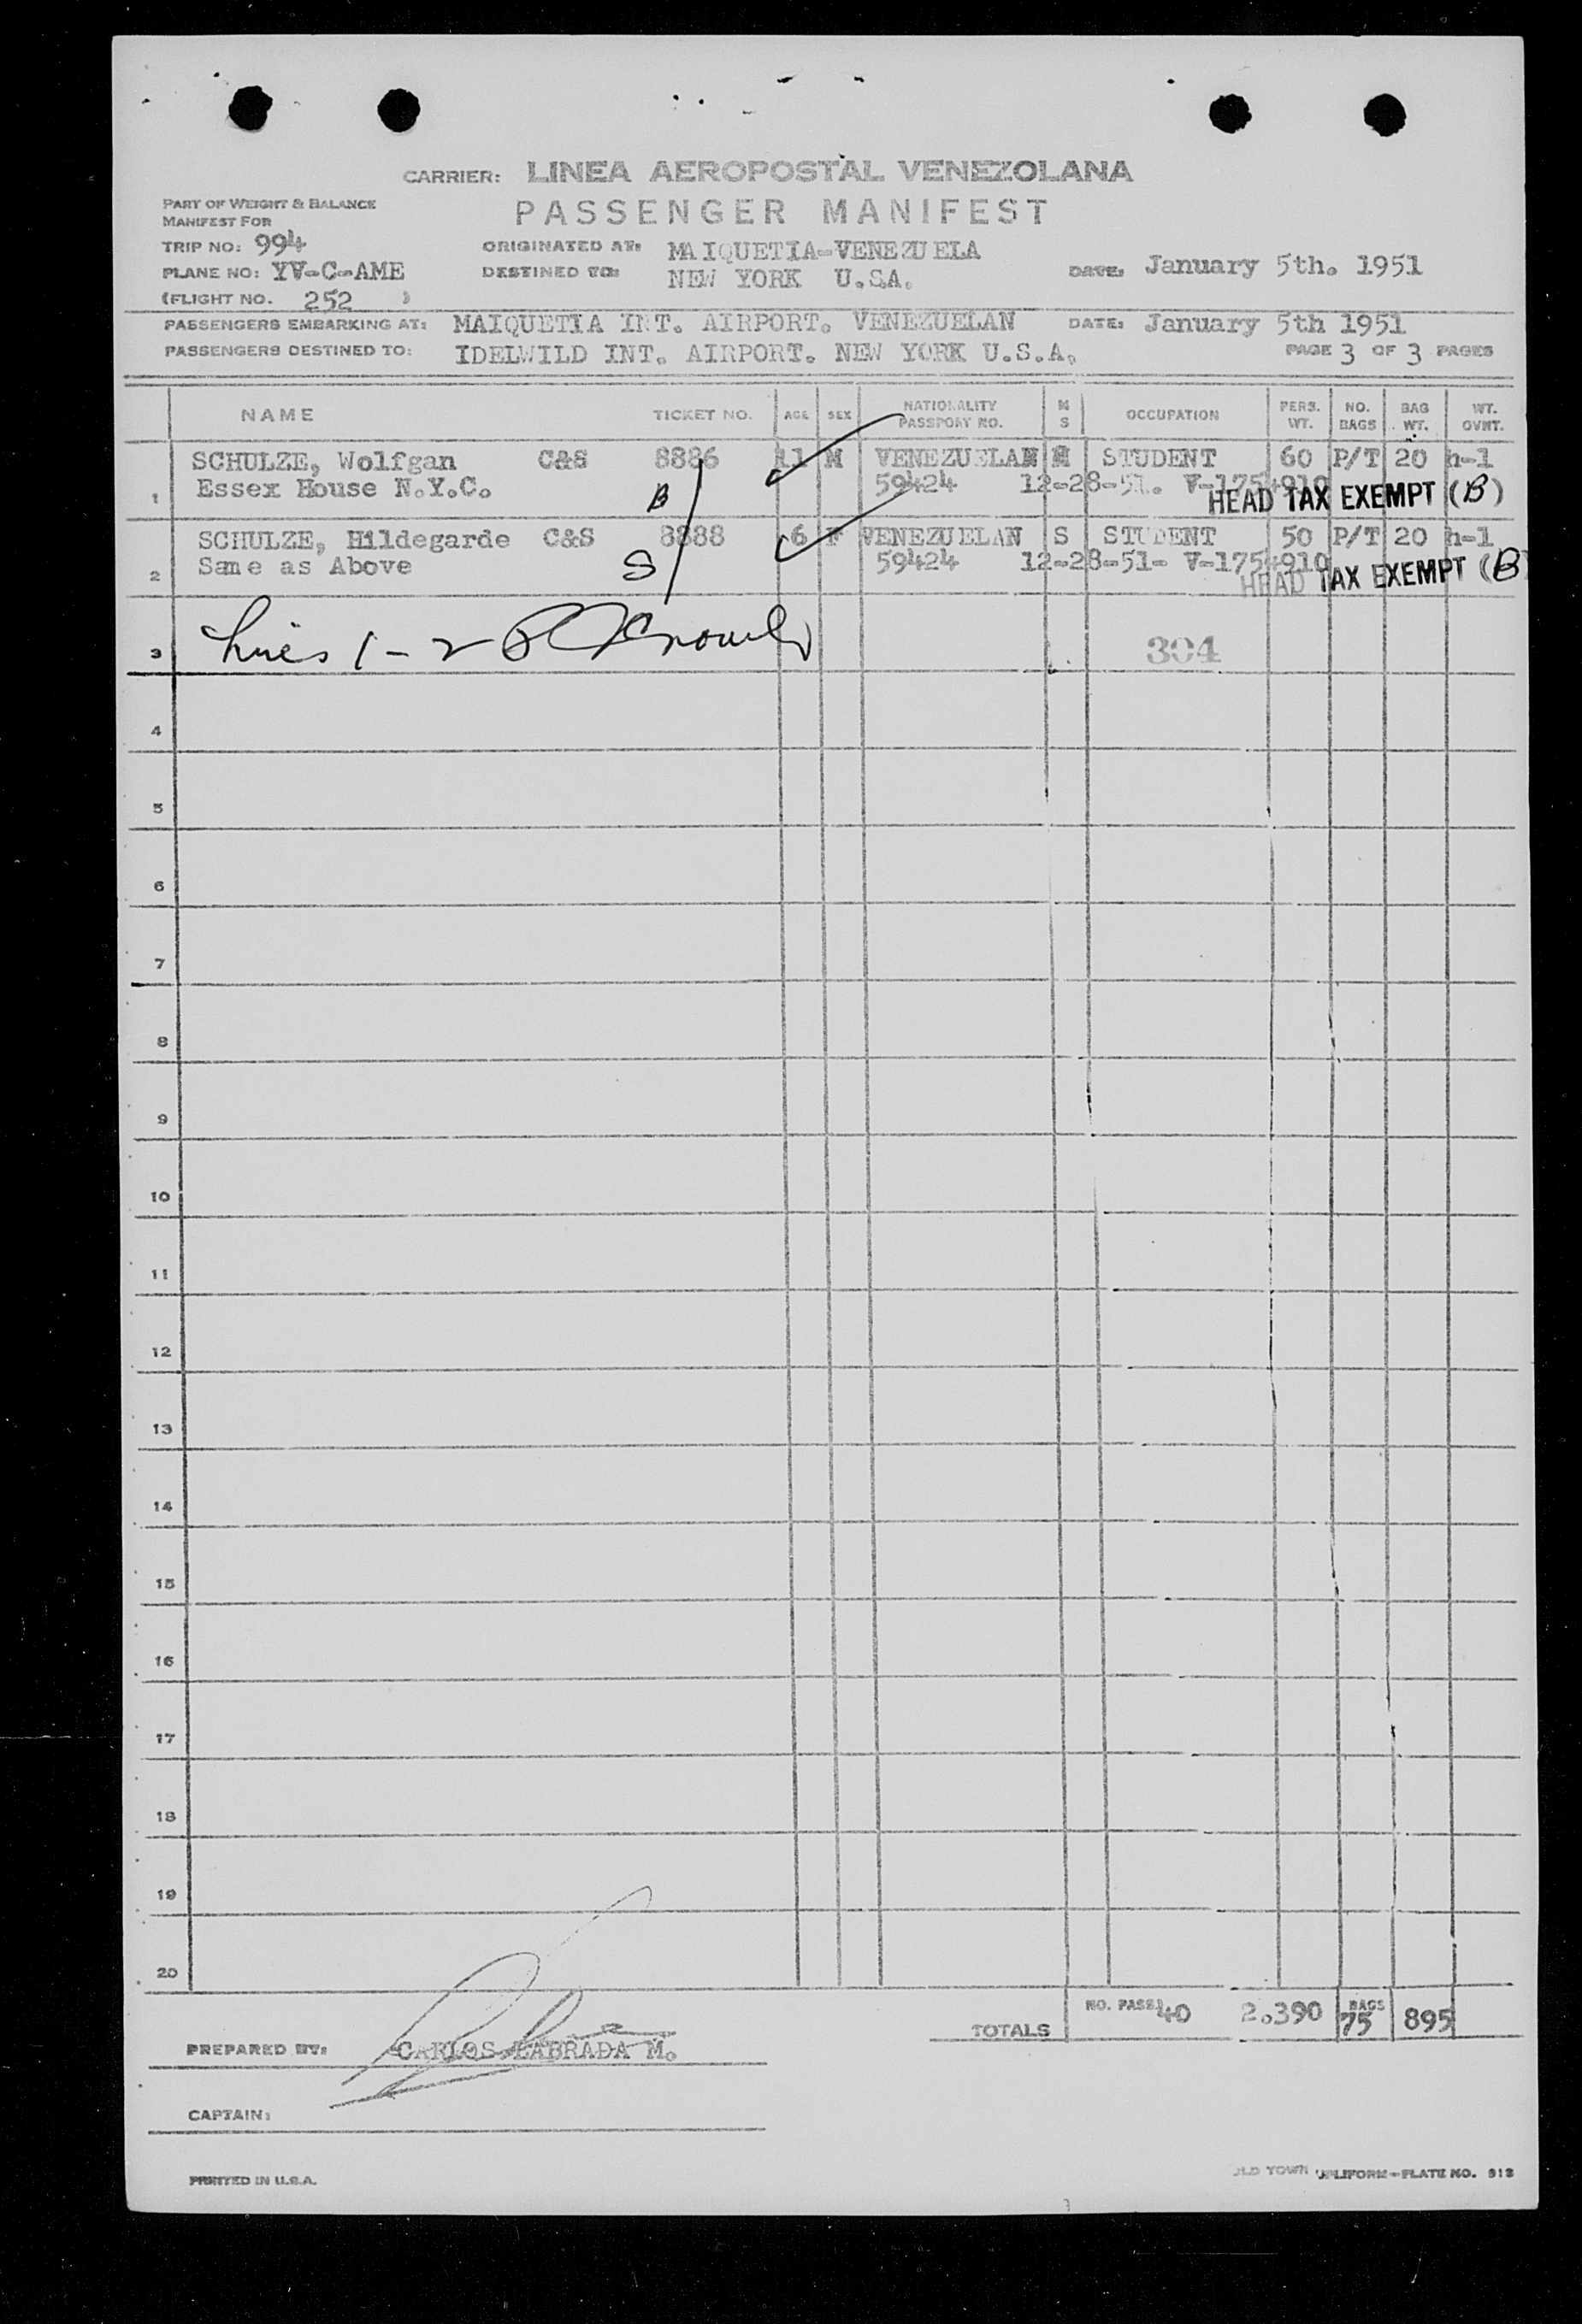 CARRIER: LINEA AEROPOSTAL VENEZOLANA
PART OF WEIGHT & BALANCE
MANIFEST FOR
PASSENGER MANIFEST
TRIP NO: 994
ORIGINATED AT: MAIQUETIA-VENEZUELA
PLANE NO: YV-C-AME
DESTINED TO: NEW YORK U.S.A.
DATE: January 5th. 1951
(FLIGHT NO. 252 )
PASSENGERS EMBARKING AT: MAIQUETIA INT. AIRPORT. VENEZUELAN DATE: January 5th 1951
PASSENGERS DESTINED TO: IDELWILD INT. AIRPORT. NEW YORK U.S.A. PAGE 3 OF 3 PAGES
NAME TICKET NO. AGE SEX NATIONALITY PASSPORT NO. M S OCCUPATION PERS. WT. NO. BAGS BAG WT. WT. OVNT.
1 SCHULZE, Wolfgan C&S 8886 11 M VENEZUELAN STUDENT 60 P/T 20 h-1
Essex House N.Y.C. B 59424 12-28-51. V-1754910
HEAD TAX EXEMPT (B)
2 SCHULZE, Hildegarde C&S 8888 6 F VENEZUELAN S STUDENT 50 P/T 20 h-1
Same as Above S 59424 12-28-51- V-1754910
HEAD TAX EXEMPT (B
3 Lines 1-2 304
4
5
6
7
8
9
10
11
12
13
14
15
16
17
18
19
20
TOTALS NO. PASS. 40 2.390 BAGS 75 895
PREPARED BY: CARLOS LABRADA M.
CAPTAIN:
PRINTED IN U.S.A.
OLD TOWN UPLIFORM-PLATE NO. 513